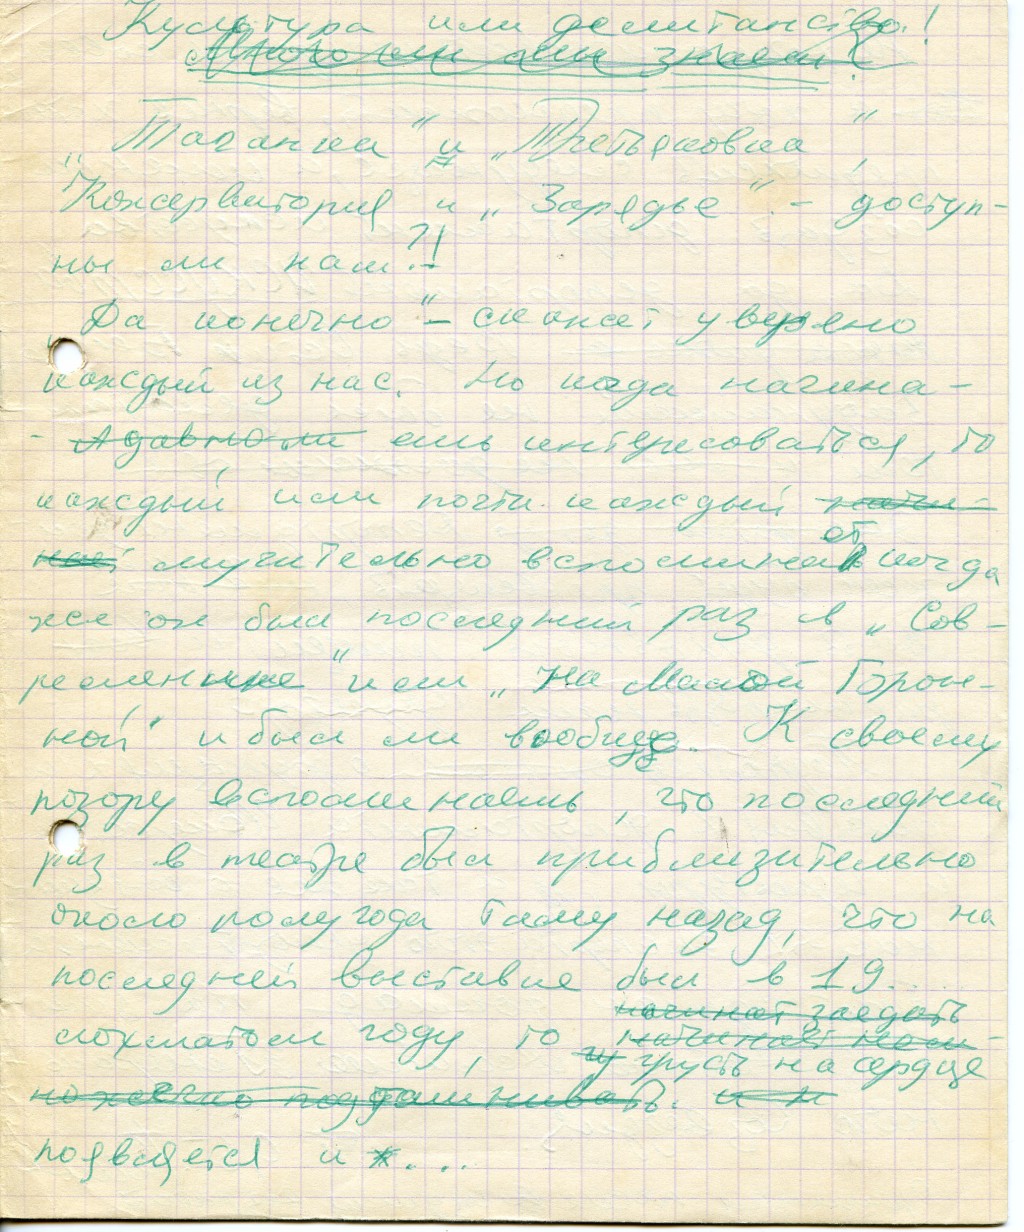 Культура или делитанство!
Много ли мы знаем?
„Таганка“ и „Третьяковка“,
„Консерватория и „Зарядье“ - доступ-
ны ли нам?!
„Да конечно“ - скажет уверено
каждый из нас. Но когда начина-
- А давно ли ешь интересоваться, то
каждый или почти каждый начи-
нает мучительно вспоминает когда
же он был последний раз в „Сов-
ременнике“ или „На Малой Брон-
ной“ и был ли вообще. К своему
позору вспоминаешь, что последний
раз в театре был приблизительно
около полугода тому назад, что на
последней выставке был в 19..
начинает заедать
лохматом году, то начинает нем-
грусть на сердце
ножечко подташнивать. и н
появляется и ....